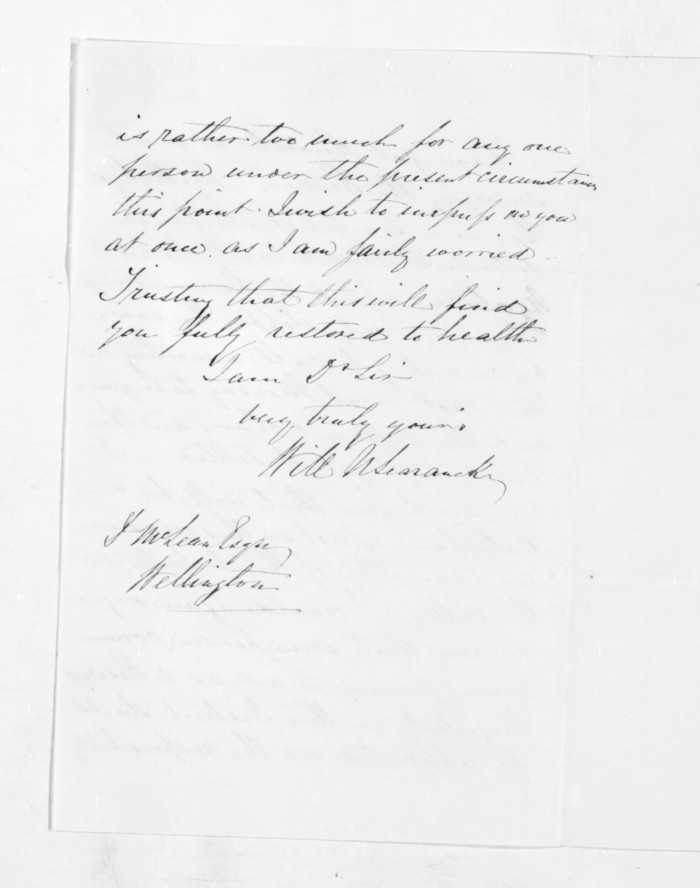 is rather too much for any one
person under the present circumstances
this point I wish to impress on you
at once, as I am fairly worried -
Trusting that this will find
you fully restored to health
I am Dr Sir
very truly yours
Will N Searancke
J McLean Esqre
Wellington